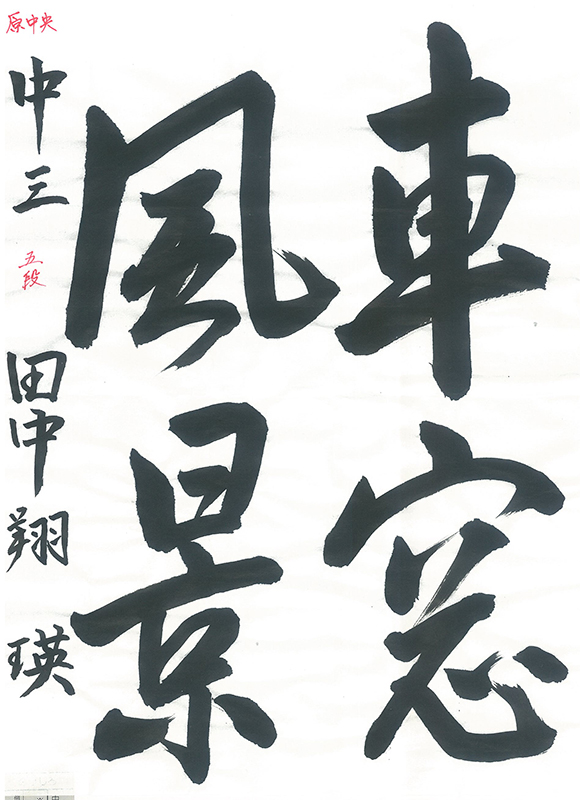 車窓
風景
原中央
中三 五段 田中翔瑛